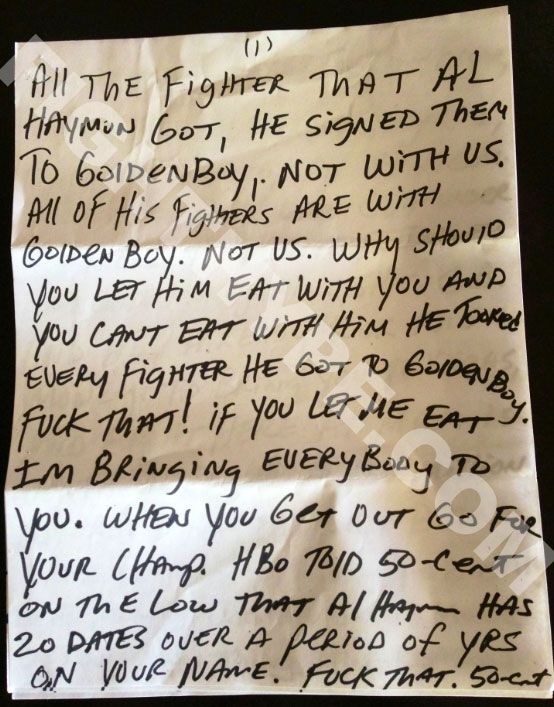 (1)
All THE FigHTER THAT AL
HAYMON GOT, HE SigNED THEM
TO GOlDENBOY, NOT WiTH US.
All OF HiS FigHTERS ARE WiTH
GOlDEN BOY. NOT US. WHY SHOUlD
YOU LET HiM EAT WiTH YOU AND
YOU CANT EAT WiTH HiM HE TOOKED
EVERY FigHTER HE GOT TO GOlDEN BOY.
FUCK THAT! iF YOU LET ME EAT
IM BRiNGiNg EVERYBODY TO
YOU. WHEN YOU GET OUT GO FOR
YOUR CHAMP. HBO TOlD 50-CENT
ON THE LOW THAT Al HAYMON HAS
20 DATES OVER A PERiOD OF YRS
ON YOUR NAME. FUCK THAT. 50-CENT
FIGHTHYPE.COM